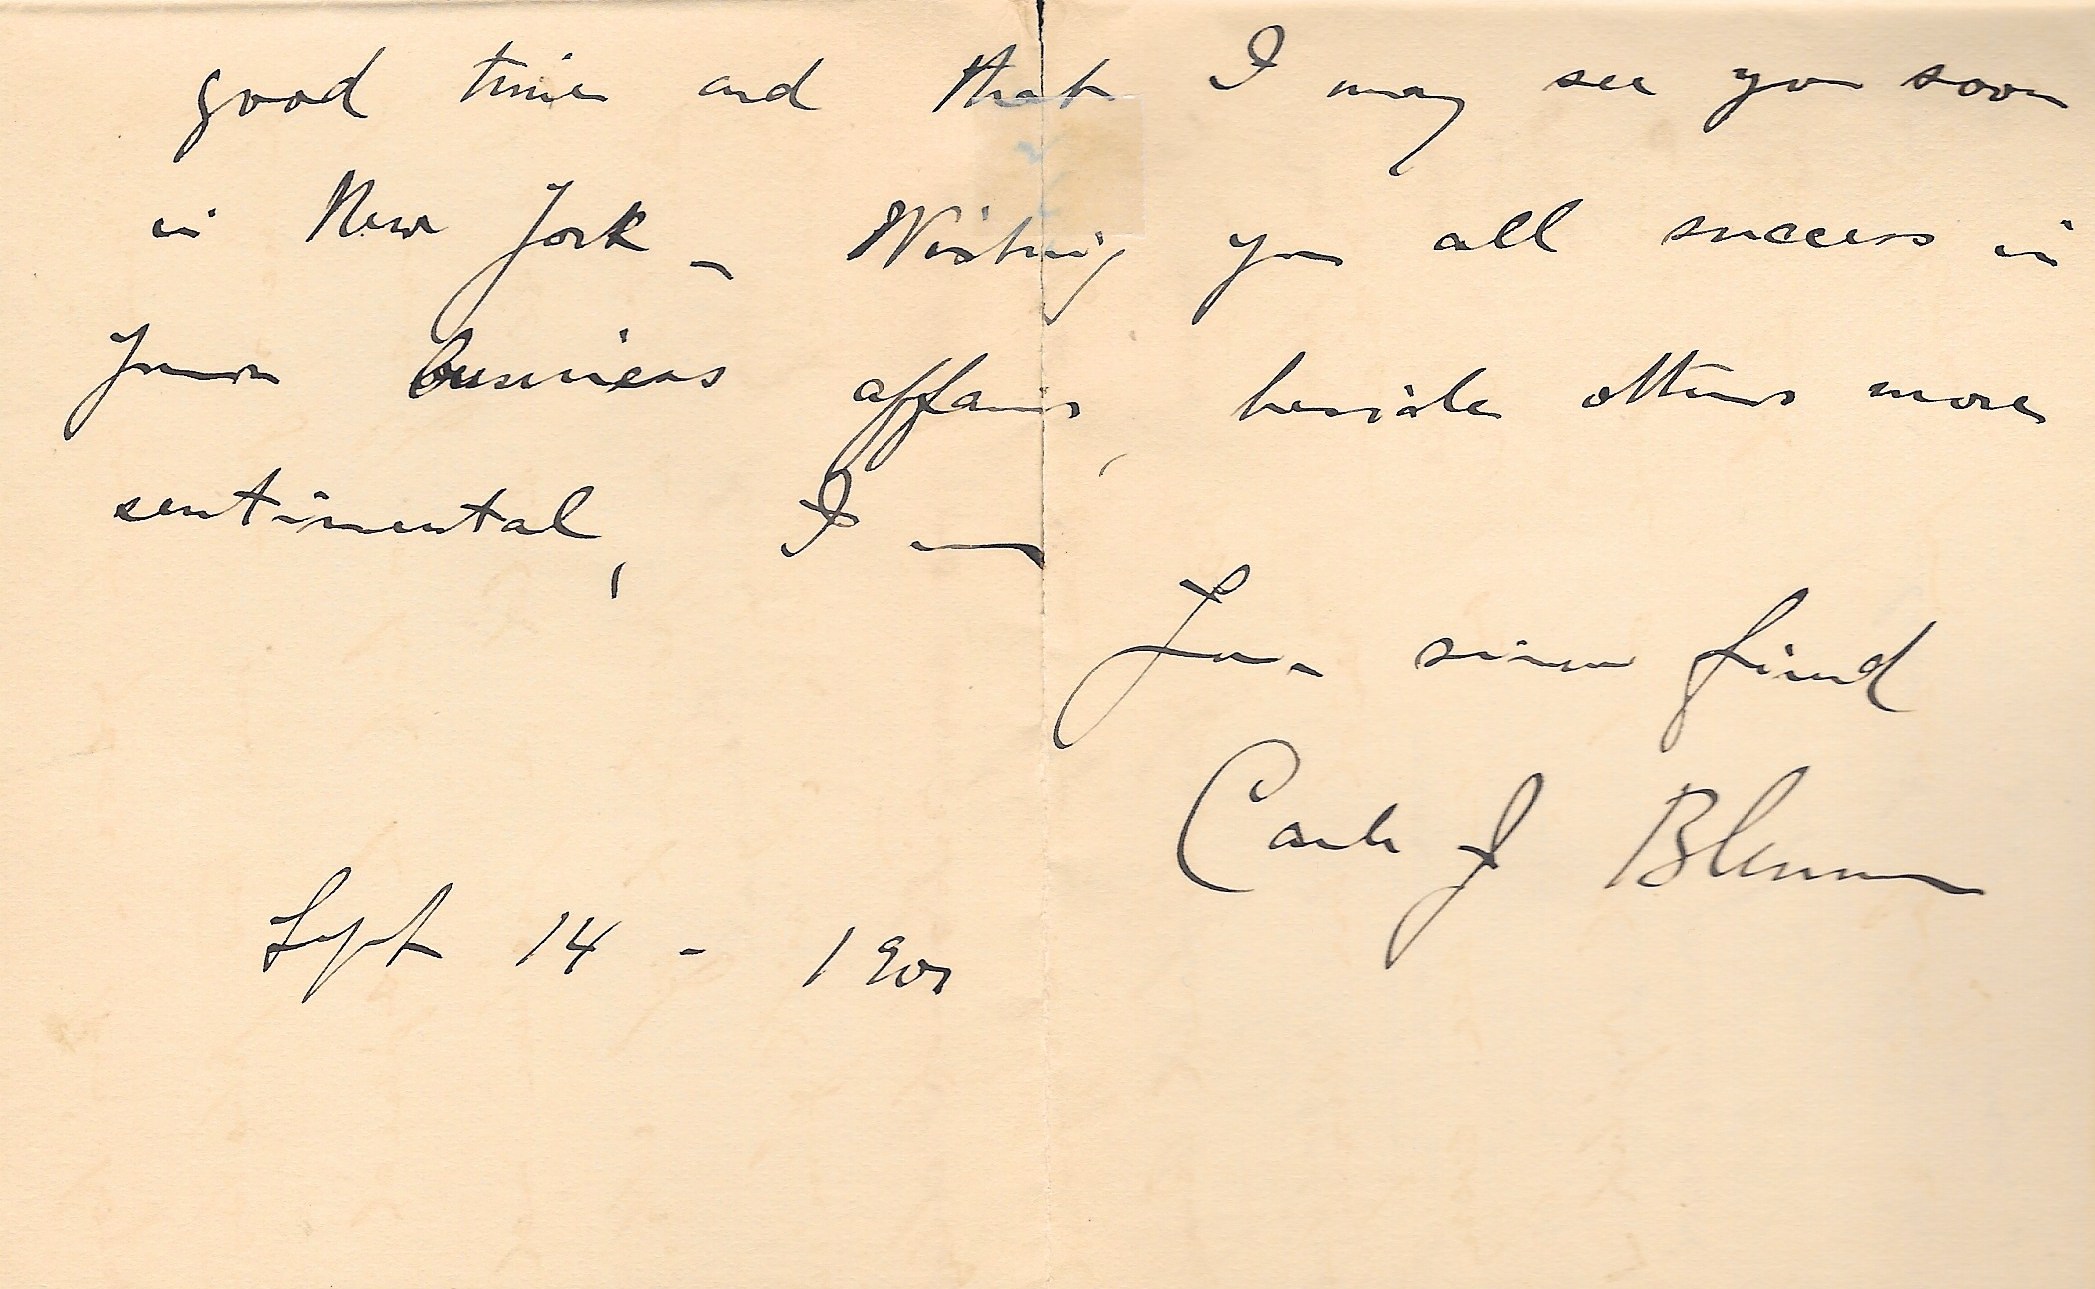 good time and that I may see you soon
in New York – Wishing you all success in
your business affairs, beside others more
sentimental, I —
Your sincere friend
Carle J Blenner
Sept 14 - 190